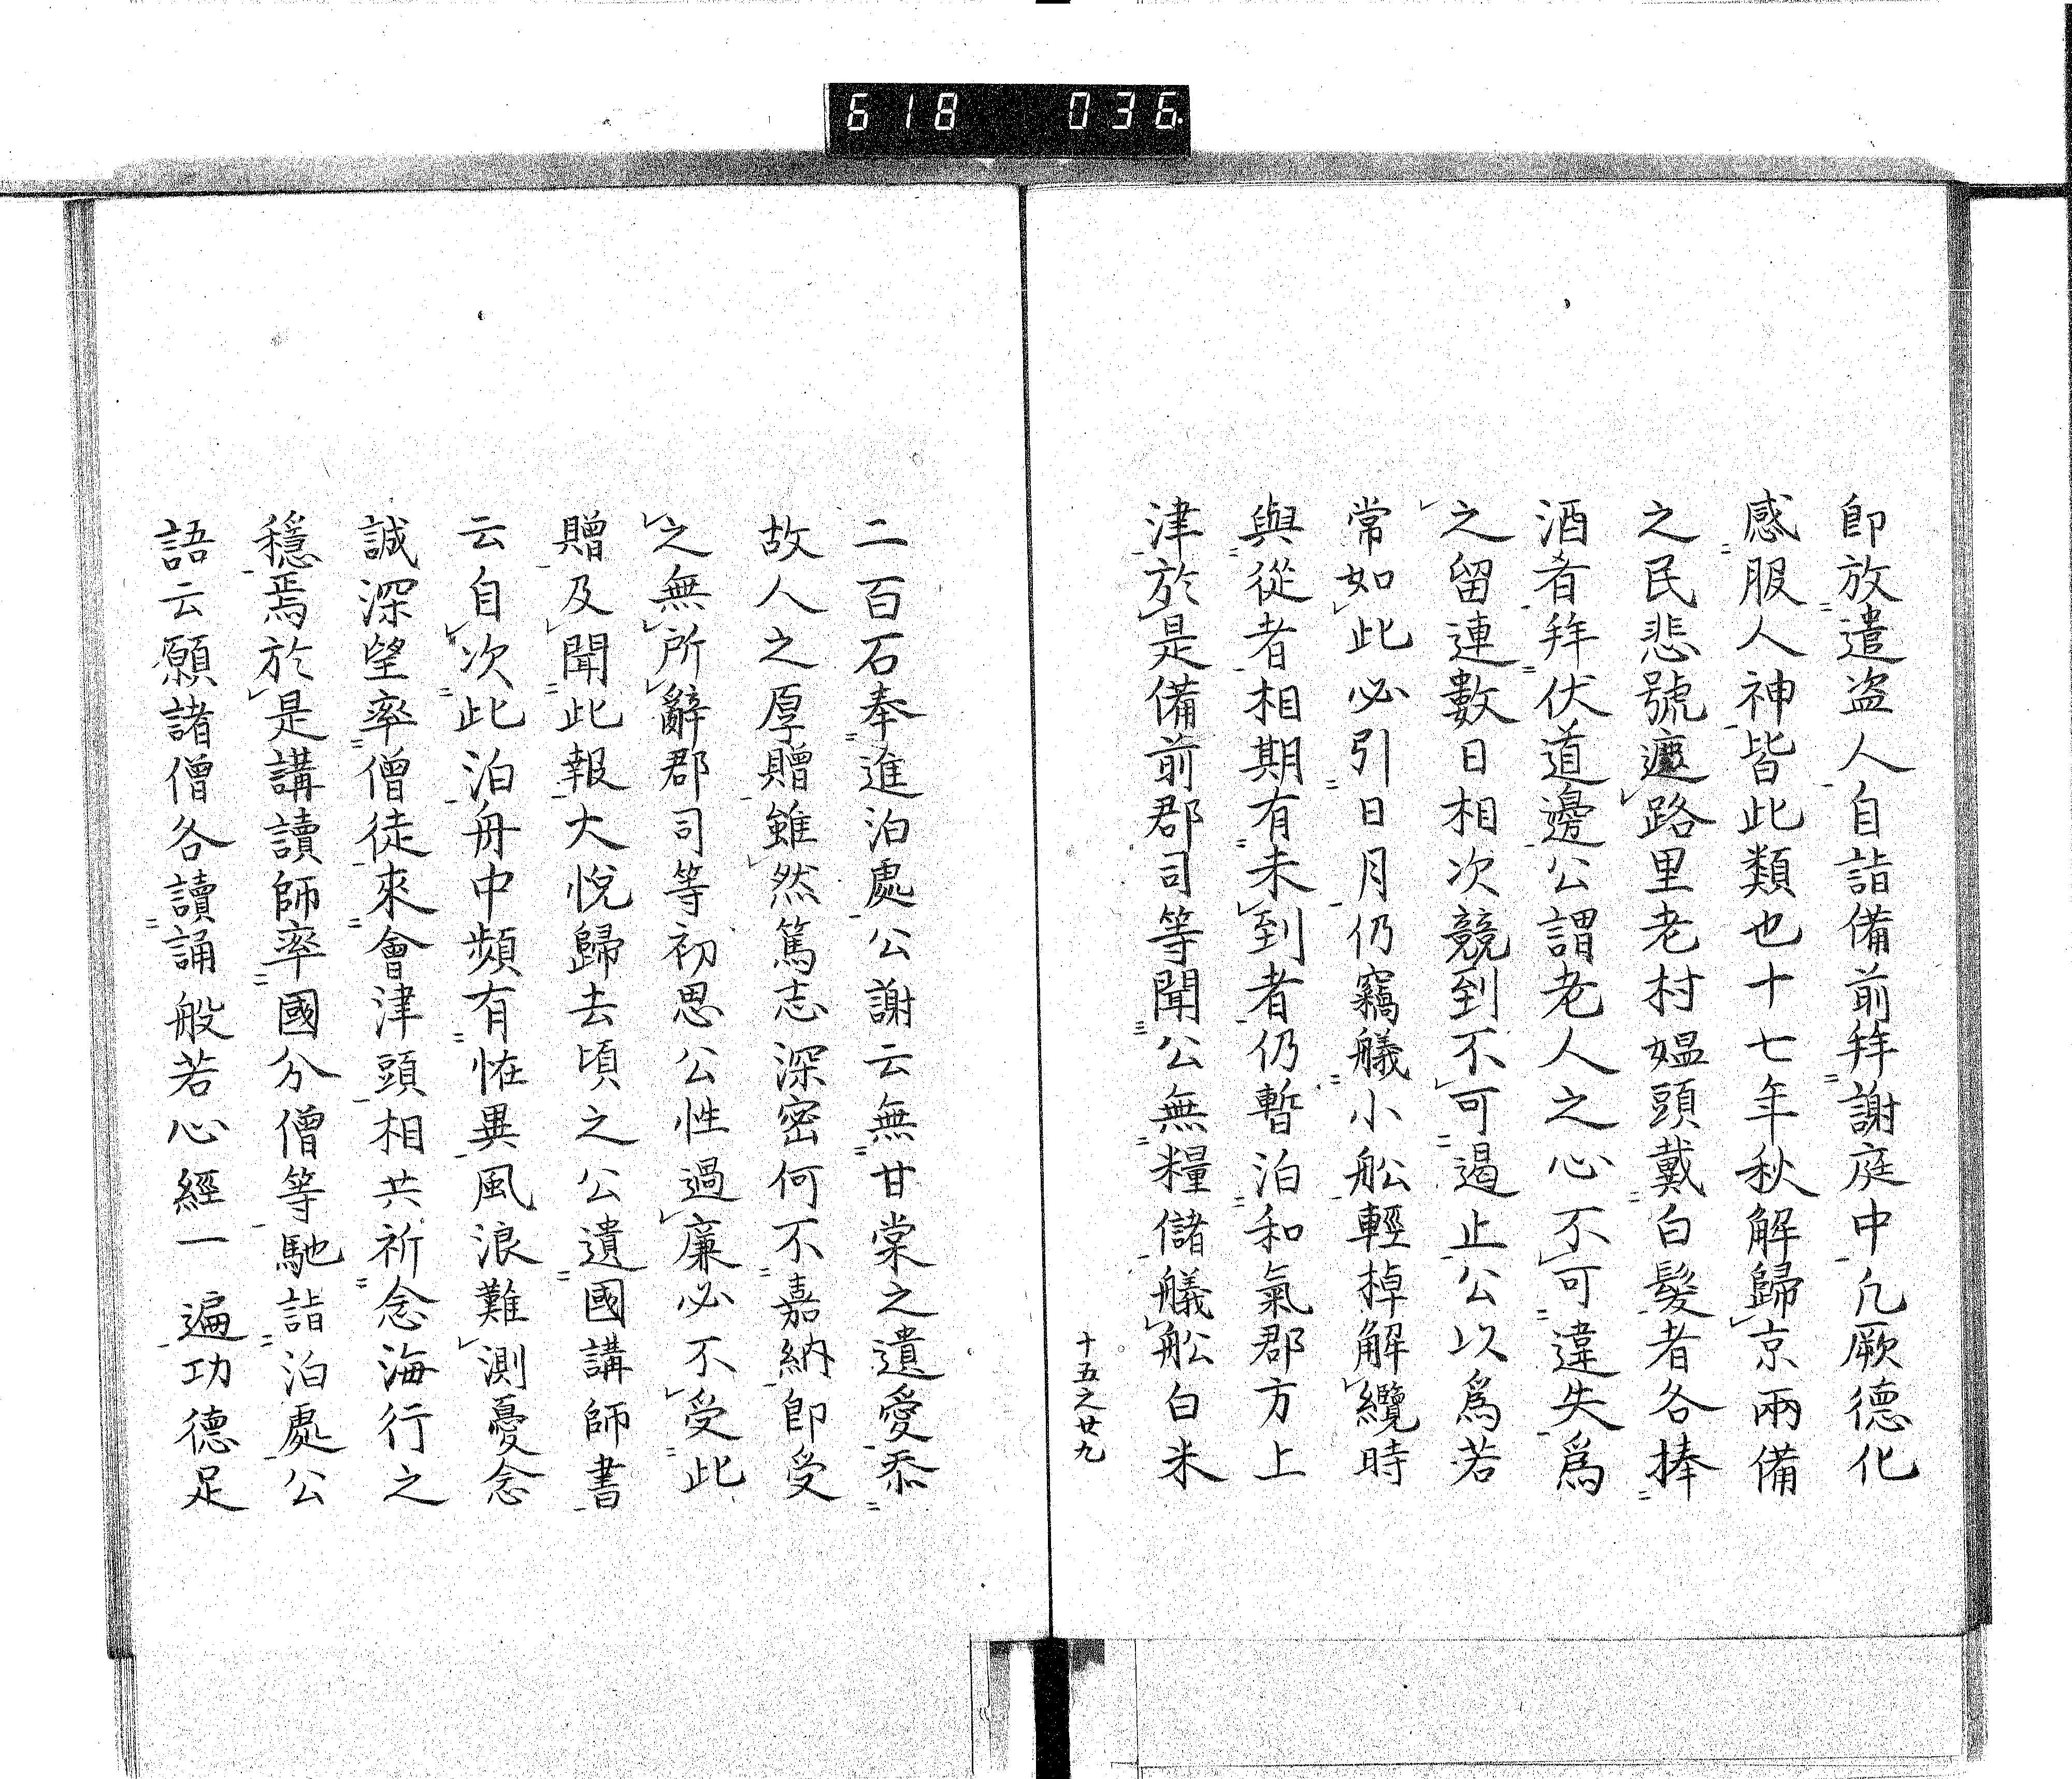 618 036.
即放遣盗人自詣備前拜謝庭中凢厥德化
感服人神皆此類也十七年秋解歸京兩備
之民悲號遮路里老村媼頭戴白髮者各捧
酒肴拜伏道邊公謂老人之心不可違失爲
之留連數日相次競到不可遏止公以爲若
常如此必引日月仍竊艤小舩輕棹解纜時
與從者相期有未到者仍暫泊和氣郡方上
津於是備前郡司等聞公無糧儲艤舩白米
十五之廿九
二百石奉進泊處公謝云無甘棠之遺愛忝
故人之厚贈雖然篤志深密何不嘉納即受
之無所辭郡司等初思公性過廉必不受此
贈及聞此報大悅歸去頃之公遺國講師書
云自次此泊舟中頻有恠異風浪難測憂念
誠深望率僧徒來會津頭相共祈念海行之
穩焉於是講讀師率國分僧等馳詣泊處公
語云願諸僧各讀誦般若心經一遍功德足